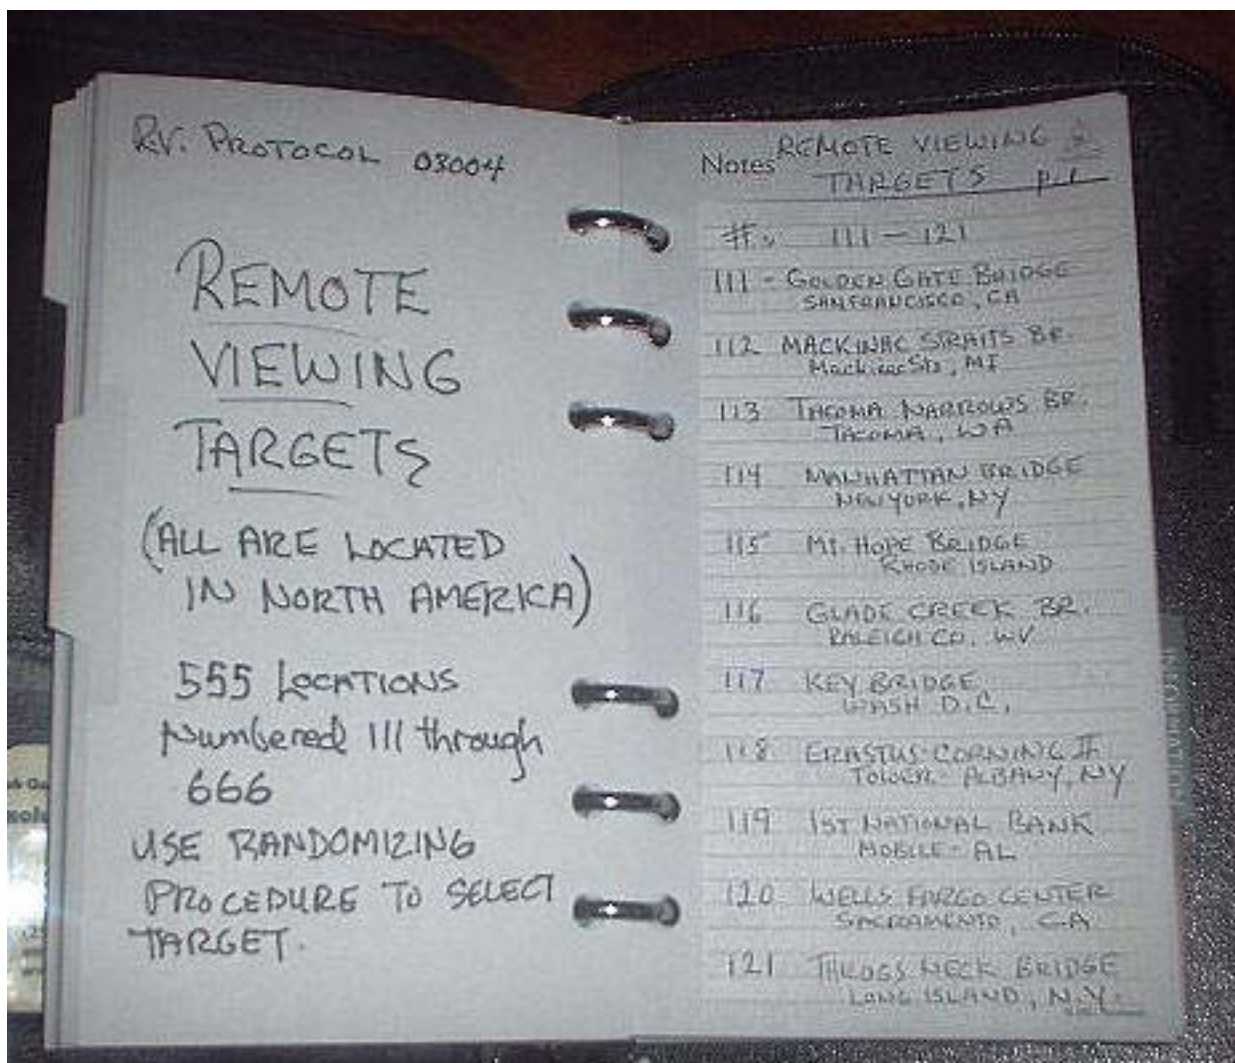 RV. PROTOCOL 03004
REMOTE
VIEWING
TARGETS
(ALL ARE LOCATED
IN NORTH AMERICA)
555 LOCATIONS
Numbered 111 through
666
USE RANDOMIZING
PROCEDURE TO SELECT
TARGET.
Notes REMOTE VIEWING
TARGETS p.1
#s 111-121
111 - GOLDEN GATE BRIDGE
SAN FRANCISCO, CA
112 MACKINAC STRAITS BR.
Mackinac Sts, MI
113 TACOMA NARROWS BR.
TACOMA, WA
114 MANHATTAN BRIDGE
NEW YORK, NY
115 MT. HOPE BRIDGE
RHODE ISLAND
116 GLADE CREEK BR.
RALEIGH CO. WV
117 KEY BRIDGE
WASH D.C.
118 ERASTUS CORNING II
TOWER - ALBANY, NY
119 1ST NATIONAL BANK
MOBILE - AL
120 WELLS FARGO CENTER
SACRAMENTO, CA
121 THROGS NECK BRIDGE
LONG ISLAND, N.Y.